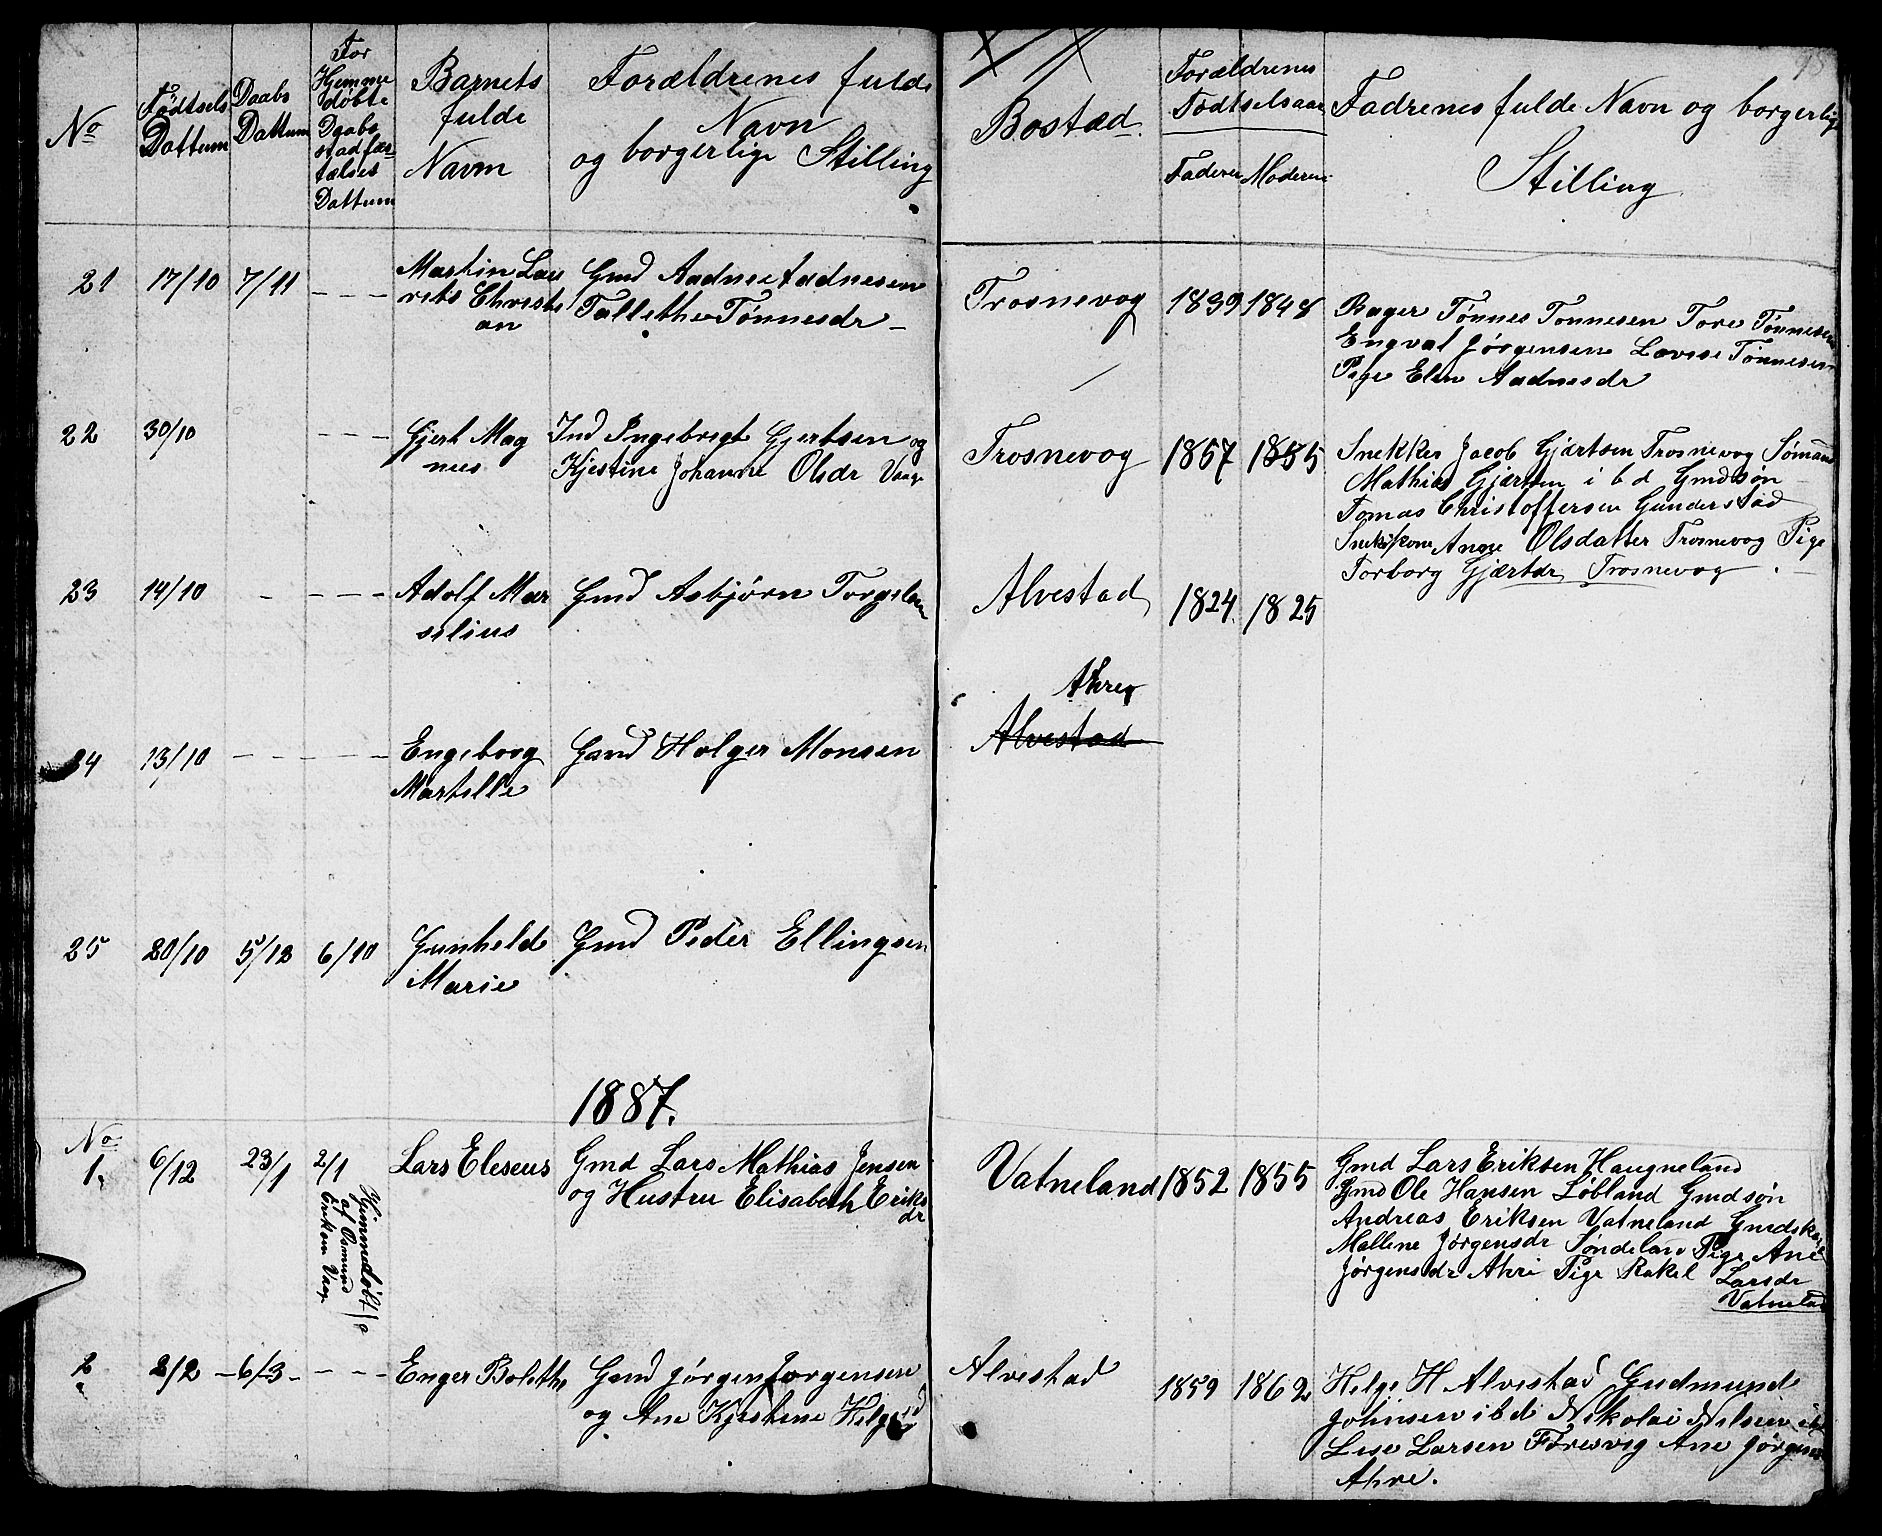 No
Födtsels
Dattum
Daabs
Dattum
For
Hjemme
döbte
Daabs
stadfær
telses
Dattum
Barnets
fulde
Navn
Forældrenes fulde
Navn
og borgerlige Stilling
Bostæd.
Forældrenes
Födtselsaar
Faderens
Moderens
Fadrenes fulde Navn og borgerlige
Stilling
21 17/10 7/11 – – –
Martin Lau
rits Christi
an
Gmd Aadne Aadnesen
Tallethe Tönnesdr –
Trosnevog 1839 1848
Bager Tönnes Tonnesen Tore Tönnesen
Engval Jörgensen Lovise Tönnesen
Pige Elen Aadnesdr
22 30/10 – – –
Gjert Mag
nus
Ind Ingebregt Gjertsen og
Kjestine Johanne Olsdr Vaage
Trosnevog 1857 1855
Snekker Jacob Gjærtsen Trosnevog Sömand
Mathias Gjærtsen i b d Gmdsön
Tomas Christoffersen Gunderstad
Snekkone Anne Olsdatter Trosnevog Pige
Torborg Gjærtdr Trosnevog .
23 14/10 – – – –
Adolf Mar
selius
Gmd Asbjörn Torgelsen
Alvestad 1824. 1825
24 13/10 – – – – –
Engeborg
Martille
Gamd Holger Monsen
Ahre
Alvestad
25 20/10 5/12 6/10
Gunhelde
Marie
Gmd Peder Ellingsen
1887.
No
1. 6/12 23/1 2/1
Hjemmedöbt
af Osmund
Eriksen Vaage
Lars Eleseus
Gmd Lars Mathias Jensen
og Hustru Elisabeth Eriks
dr
Vatneland 1852 1855
Gmd Lars Eriksen Haugneland
Gmd Ole Hansen Löbland Gmdsön
Andreas Eriksen Vatneland Gmdsk
Mallene Jörgensdr Söndeland Pige Ane
Jörgensdr Ahre Pige Rakel Larsdr
Vatneland
2 2/2 – 6/3 – – – –
Enger Bolethe
Gamd Jörgen Jorgensen
og Ane Kjestine Helgesd
Alvestad 1859 1862
Helge H Alvestad Gudmund
Johnsen ibd Nikolai Nilsen ibd
Lise Larsen Föresvig Ane Jörgens
Ahre.